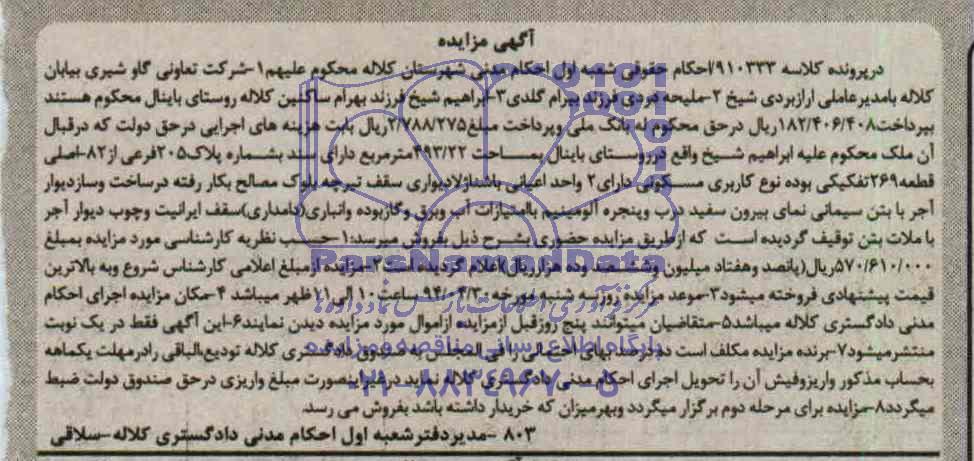 آگهی مزایده
درپرونده کلاسه ۹۱۰۳۳۳/احکام حقوقی شعبه اول احکام مدنی شهرستان کلاله محکوم علیهم۱-شرکت تعاونی گاو شیری بیابان
کلاله بامدیرعاملی ارازبردی شیخ ۲-ملیحه دردی فرزند بیرام گلدی۳-ابراهیم شیخ فرزند بهرام ساکنین کلاله روستای باینال محکوم هستند
بپرداخت۱۸۲/۴۰۶/۴۰۸ریال درحق محکوم له بانک ملی وپرداخت مبلغ۲/۷۸۸/۲۷۵ریال بابت هزینه های اجرایی درحق دولت که درقبال
آن ملک محکوم علیه ابراهیم شیخ واقع درروستای باینال بمساحت ۴۹۳/۲۲مترمربع دارای سند بشماره پلاک۲۰۵فرعی از۸۲-اصلی
قطعه۲۶۹تفکیکی بوده نوع کاربری مسکونی دارای۲ واحد اعیانی باشداولادیواری سقف تیرچه بلوک مصالح بکار رفته درساخت وسازدیوار
آجر با بتن سیمانی نمای بیرون سفید درب وپنجره آلومینیم باامتیازات آب وبرق وگازبوده وانباری(دامداری)سقف ایرانیت وچوب دیوار آجر
با ملات بتن توقیف گردیده است که ازطریق مزایده حضوری بشرح ذیل بفروش میرسد:۱-حسب نظریه کارشناسی مورد مزایده بمبلغ
۵۷۰/۶۱۰/۰۰۰ریال(پانصد وهفتاد میلیون وششصد وده هزارریال)اعلام گردیده است۲-مزایده ازمبلغ اعلامی کارشناس شروع وبه بالاترین
قیمت پیشنهادی فروخته میشود۳-موعد مزایده روزسه شنبه مورخه ۹۴/۰۴/۳۰ساعت۱۰الی۱۱ظهر میباشد ۴-مکان مزایده اجرای احکام
مدنی دادگستری کلاله میباشد۵-متقاضیان میتوانند پنج روزقبل ازمزایده ازاموال مورد مزایده دیدن نمایند۶-این آگهی فقط در یک نوبت
منتشرمیشود۷-برنده مزایده مکلف است ده درصد بهای احتمالی را فی المجلس به صندوق دادگستری کلاله تودیع،الباقی رادرمهلت یکماهه
بحساب مذکور واریزوفیش آن را تحویل اجرای احکام مدنی دادگستری کلاله نماید درغیراینصورت مبلغ واریزی درحق صندوق دولت ضبط
میگردد۸-مزایده برای مرحله دوم برگزار میگردد وبهرمیزان که خریدار داشته باشد بفروش می رسد.
۸۰۳ -مدیردفترشعبه اول احکام مدنی دادگستری کلاله-سلاقی
ParsNamadData
مرکز فرآوری اطلاعات پارس نماد داده ها
پایگاه اطلاع رسانی مناقصه و مزایده
۰۲۱-۸۸۳۴۹۶۷۰-۵